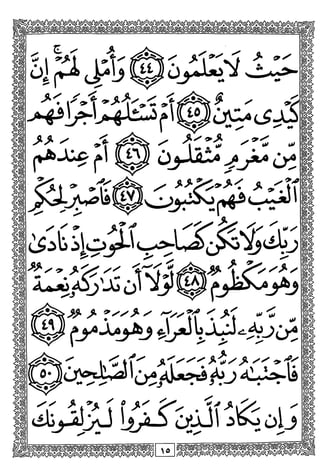 حَيْثُ لَا يَعْلَمُونَ ﴿٤٤﴾ وَأُمْلِى لَهُمْ ۚ إِنَّ
كَيْدِى مَتِينٌ ﴿٤٥﴾ أَمْ تَسْـَٔلُهُمْ أَجْرًا فَهُم
مِّن مَّغْرَمٍ مُّثْقَلُونَ ﴿٤٦﴾ أَمْ عِندَهُمُ
ٱلْغَيْبُ فَهُمْ يَكْتُبُونَ ﴿٤٧﴾ فَٱصْبِرْ لِحُكْمِ
رَبِّكَ وَلَا تَكُن كَصَاحِبِ ٱلْحُوتِ إِذْ نَادَىٰ
وَهُوَ مَكْظُومٌ ﴿٤٨﴾ لَّوْلَآ أَن تَدَارَكَهُۥ نِعْمَةٌ
مِّن رَّبِّهِۦ لَنُبِذَ بِٱلْعَرَآءِ وَهُوَ مَذْمُومٌ ﴿٤٩﴾
فَٱجْتَبَاهُ رَبُّهُۥ فَجَعَلَهُۥ مِنَ ٱلصَّالِحِينَ ﴿٥٠﴾
وَإِن يَكَادُ ٱلَّذِينَ كَفَرُوا۟ لَيُزْلِقُونَكَ
١٥